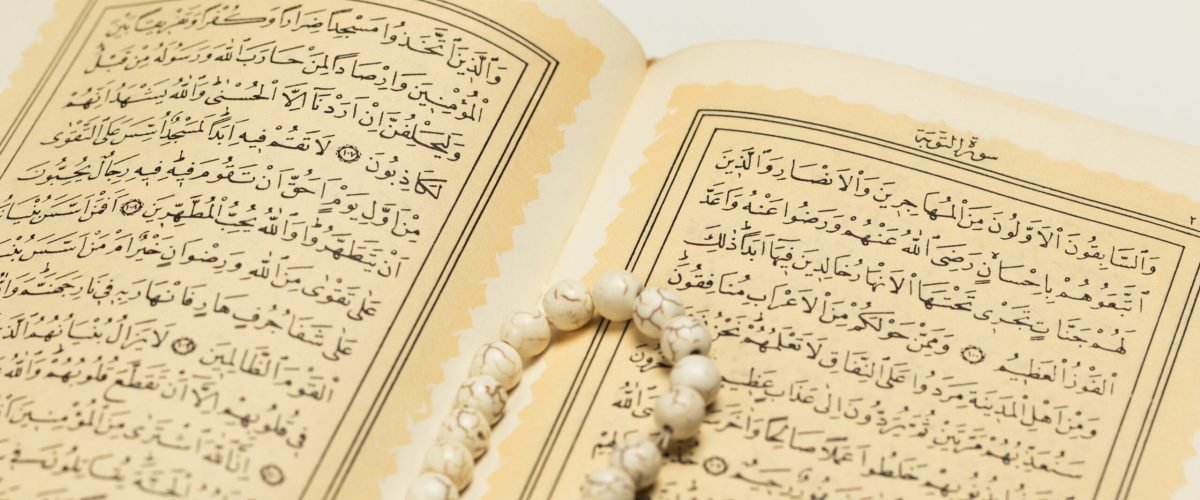 سورة التوبة
وَالسَّابِقُونَ الْاَوَّلُونَ مِنَ الْمُهَاجِرِينَ وَالْاَنْصَارِ وَالَّذِينَ
اتَّبَعُوهُمْ بِاِحْسَانٍ رَضِيَ اللّٰهُ عَنْهُمْ وَرَضُوا عَنْهُ وَاَعَدَّ
لَهُمْ جَنَّاتٍ تَجْرِي تَحْتَهَا الْاَنْهَارُ خَالِدِينَ فِيهَا اَبَدًا ذٰلِكَ
الْفَوْزُ الْعَظِيمُ ١٠٠ وَمِمَّنْ حَوْلَكُمْ مِنَ الْاَعْرَابِ مُنَافِقُونَ
وَمِنْ اَهْلِ الْمَدِينَةِ مَرَدُوا عَلَى النِّفَاقِ لَا تَعْلَمُهُمْ نَحْنُ
سَنُعَذِّبُهُمْ مَرَّتَيْنِ ثُمَّ يُرَدُّونَ اِلٰى عَذَابٍ عَظِيمٍ
خَلَطُوا عَمَلًا صَالِحًا وَاٰخَرَ اللّٰهُ
رَحِيمٌ
وَالَّذِينَ اتَّخَذُوا مَسْجِدًا ضِرَارًا وَكُفْرًا وَتَفْرِيقًا بَيْنَ
الْمُؤْمِنِينَ وَاِرْصَادًا لِمَنْ حَارَبَ اللّٰهَ وَرَسُولَهُ مِنْ قَبْلُ
وَلَيَحْلِفُنَّ اِنْ اَرَدْنَا اِلَّا الْحُسْنٰى وَاللّٰهُ يَشْهَدُ اِنَّهُمْ
لَكَاذِبُونَ ١٠٧ لَا تَقُمْ فِيهِ اَبَدًا لَمَسْجِدٌ اُسِّسَ عَلَى التَّقْوٰى
مِنْ اَوَّلِ يَوْمٍ اَحَقُّ اَنْ تَقُومَ فِيهِ فِيهِ رِجَالٌ يُحِبُّونَ
اَنْ يَتَطَهَّرُوا وَاللّٰهُ يُحِبُّ الْمُطَّهِّرِينَ ١٠٨ اَفَمَنْ اَسَّسَ بُنْيَانَهُ
عَلٰى تَقْوٰى مِنَ اللّٰهِ وَرِضْوَانٍ خَيْرٌ اَمْ مَنْ اَسَّسَ
عَلٰى شَفَا جُرُفٍ هَارٍ فَانْهَارَ بِهِ فِي نَارِ جَهَنَّمَ
الْقَوْمَ الظَّالِمِينَ ١٠٩ لَا يَزَالُ بُنْيَانُهُمُ
فِي قُلُوبِهِمْ اِلَّا اَنْ تَقَطَّعَ قُلُوبُهُمْ وَاللّٰهُ
اِنَّ اللّٰهَ اشْتَرٰى مِنَ الْمُؤْمِنِينَ
الْجَنَّةَ يُقَاتِلُونَ